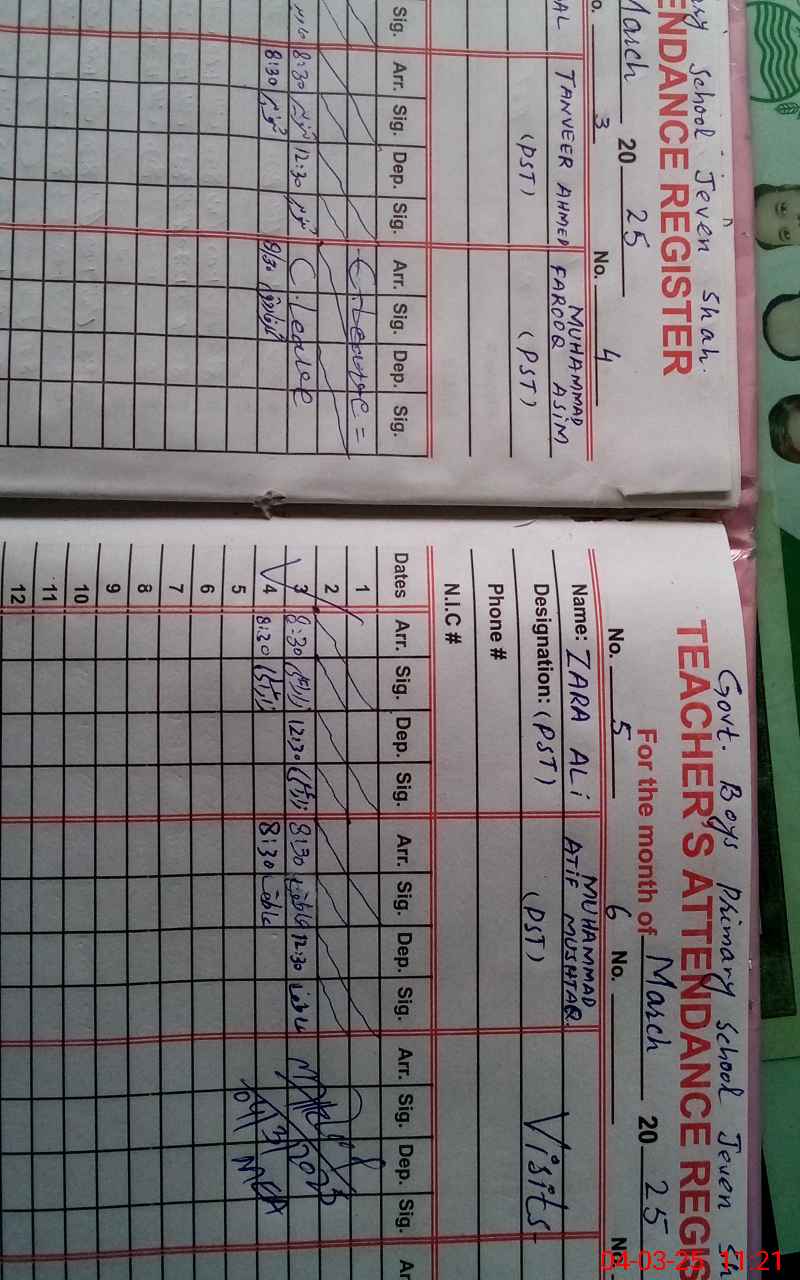 ry School Jeven Shah.
ENDANCE REGISTER
March 20 25
o. 3 No. 4
AL TANVEER AHMED MUHAMMAD FAROOQ ASIM
(PST) (PST)
Sig. Arr. Sig. Dep. Sig. Arr. Sig. Dep. Sig.
C.Leave =
8:30 12:30 C.Leave
8:30 8:30
Govt. Boys Primary School Jeven Sh
TEACHER'S ATTENDANCE REGIS
For the month of March 20 25
No. 5 6 No. No
Name: ZARA ALI MUHAMMAD ATIF MUSHTAQ.
Designation: (PST) (PST) Visits
Phone #
N.I.C #
Dates Arr. Sig. Dep. Sig. Arr. Sig. Dep. Sig. Arr. Sig. Dep. Sig. Ar
1
2
3 8:30 12:30 8:30 12:30
4 8:30 8:30
5 MEA
6
7
8
9
10
11
12
04-03-25 11:21